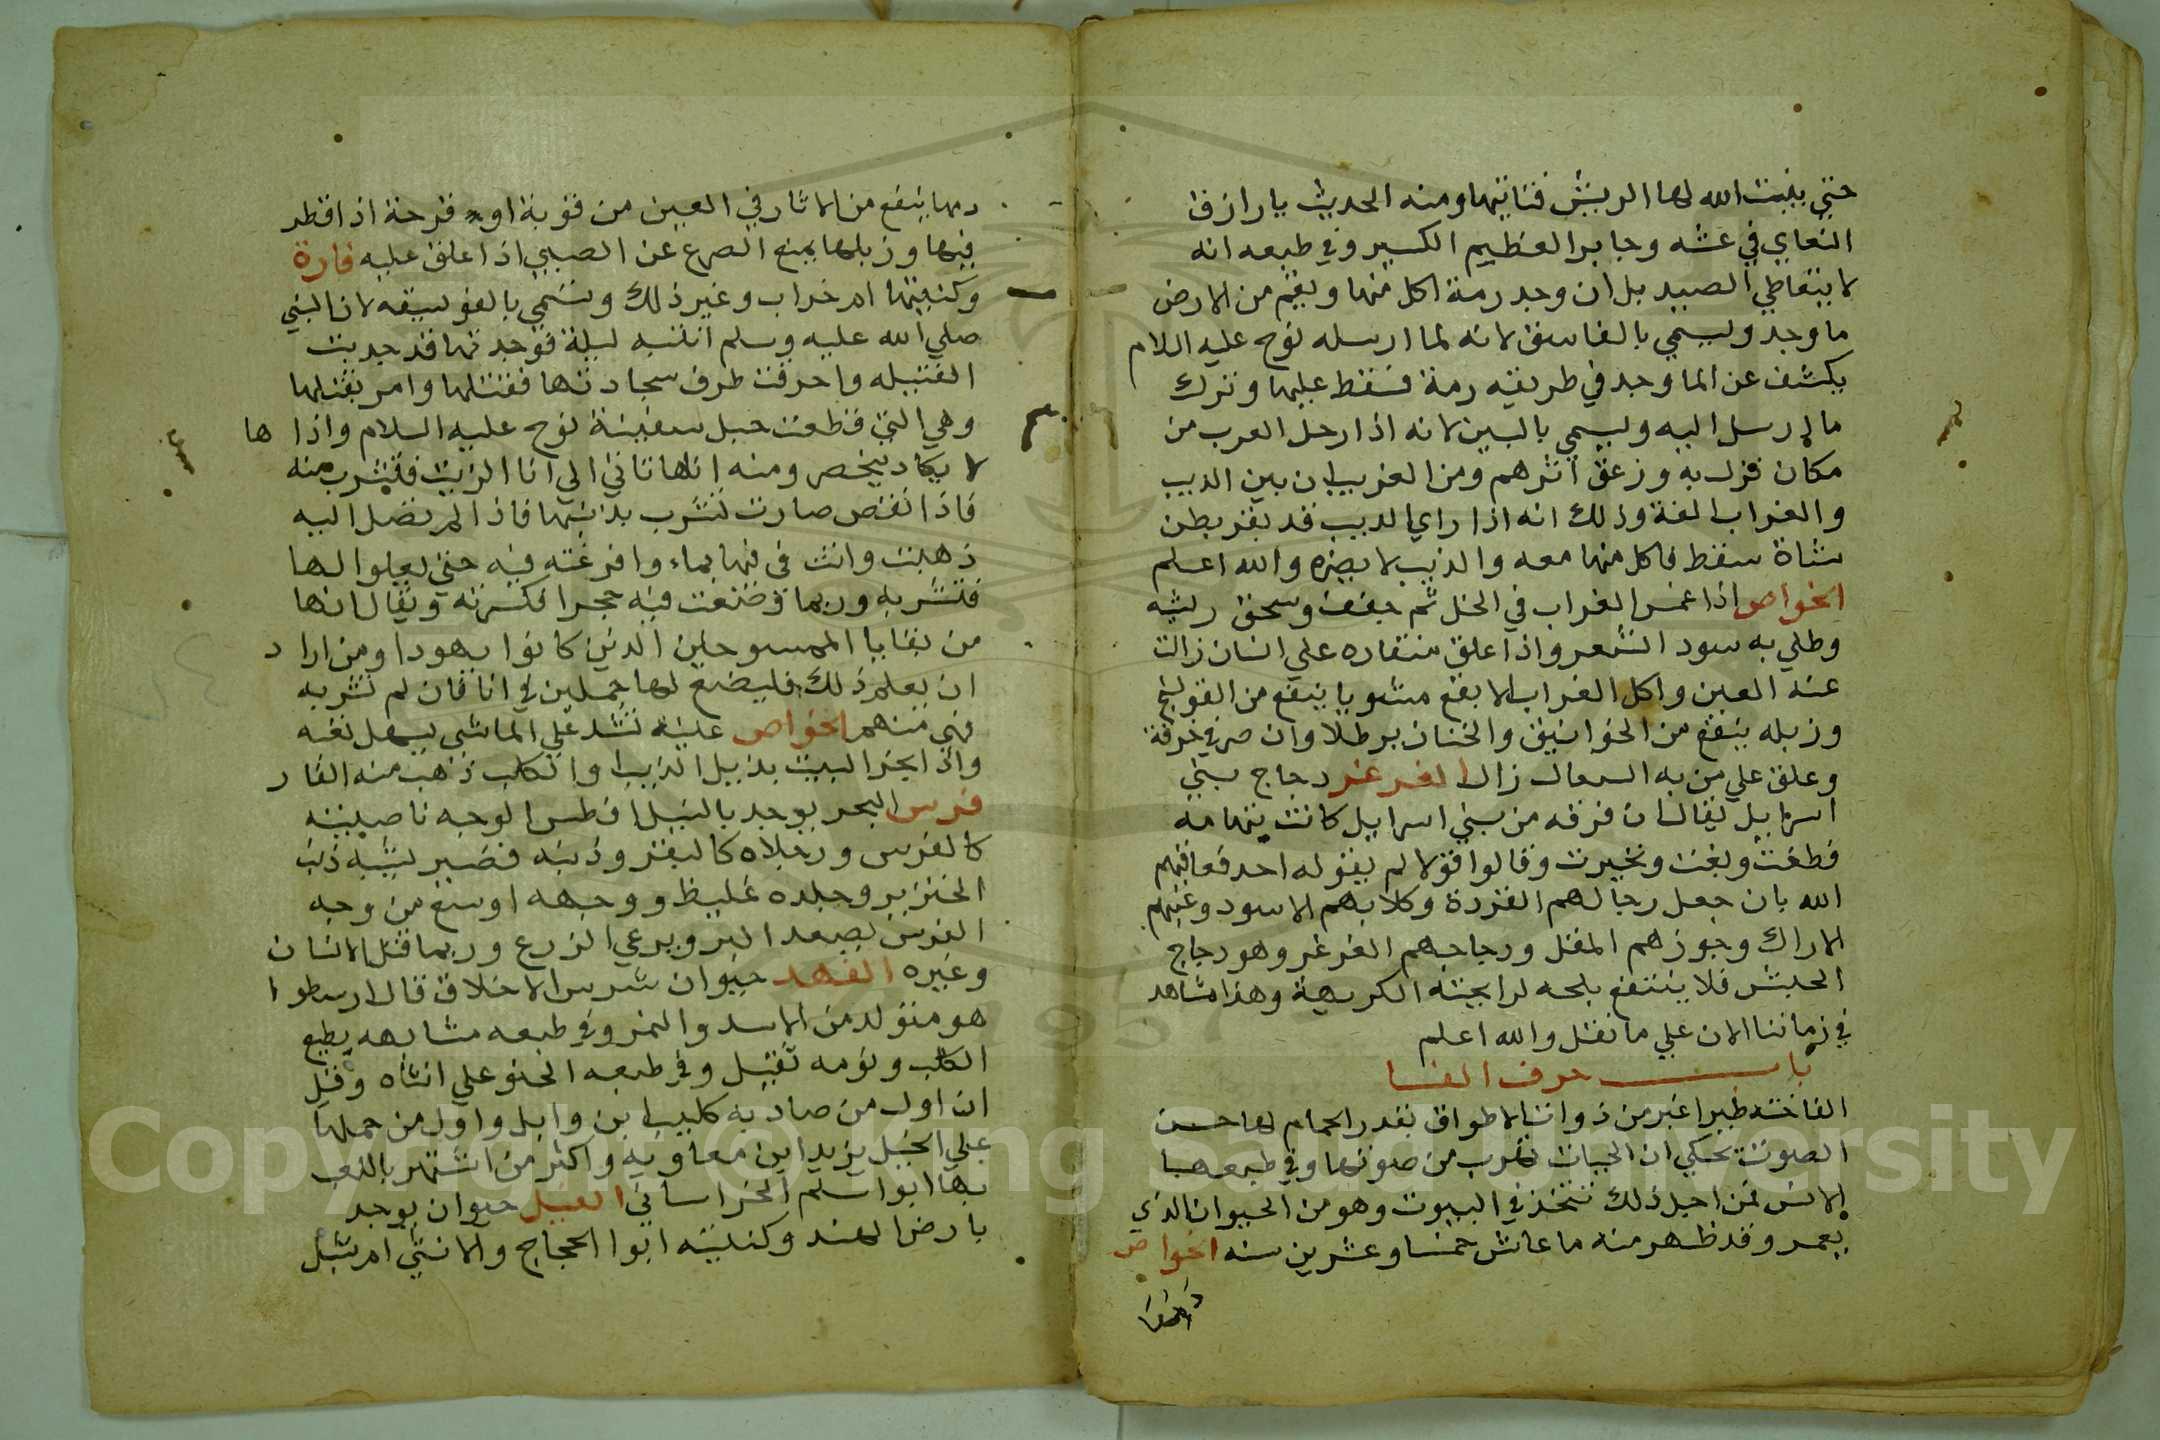 حتي ينبت الله لها الريش فتاتيها ومنه الحديث يا رازق
النعاي في عشه وجابر العظيم الكسير وفي طبعه انه
لا يتعاطي الصيد بل ان وجد رمة اكل منها ويقم من الارض
ما وجد ويسمي بالفاسق لانه لما ارسله نوح عليه اللام
يكشف عن الما وجد في طريقه رمة فسقط عليها وترك
ما ارسل اليه ويسمي بالبين لانه اذا رحل العرب من
مكان نزل به وزعق اثرهم ومن الغريب ان بين الديب
والغراب الفة وذلك انه اذا راي الديب قد بقر بطن
شاة سقط فاكل منها معه والذيب لا يضره والله اعلم
الخواص اذا غمس الغراب في الخل ثم جفف وسحق ريشه
وطلي به سود الشعر واذا علق منقاره علي انسان زالت
عنه العين واكل الغراب الابقع مشويا ينفع من القولنج
وزبله ينفع من الخوانيق والخنازير طلا وان صر في خرقة
وعلق علي من به السعال زال الغرغر دجاج بني
اسراييل يقال ان فرقه من بني اسراييل كانت بتهامه
فطغت وبغت وتجبرت وقالوا قولا لم يقوله احد فعاقبهم
الله بان جعل رجالهم القردة وكلابهم الاسود وعنبهم
الاراك وجوزهم المقل ودجاجهم الغرغر وهو دجاج
الحبش فلا ينتفع بلحمه لرايحته الكريهة وهذا مشاهد
في زماننا الان علي ما نقل والله اعلم
باب حرف الفا
الفاخته طير اغبر من ذوات الاطواق بقدر الحمام لها حسن
الصوت تحكي ان الحيات تهرب من صوتها وفي طبعها
الانس فمن اجل ذلك تتخذ في البيوت وهو من الحيوان الذي
يعمر وقد ظهر منه ما عاش خمسا وعشرين سنه الخواص
دمها
دمها ينفع من الاثار في العين من قوبة او قرحة اذا قطر
فيها وزبلها يمنع الصرع عن الصبي اذا علق عليه فارة
وكنيتها ام خراب وغير ذلك وتسمي بالفويسقه لان النبي
صلي الله عليه وسلم انتبه ليلة فوجدها قد جذبت
الفتيله واحرقت طرف سجادتها فقتلها وامر بقتلها
وهي التي قطعت حبل سفينة نوح عليه السلام واذاها
لا يكاد ينحصر ومنه انها تاتي الي انا الزيت فتشرب منه
فاذا نقص صارت تشرب بذنبها فاذا لم تصل اليه
ذهبت واتت في فيها بماء وافرغته فيه حتي يعلوا لها
فتشربه وربما وضعت فيه حجرا فكسرته ويقال انها
من بقايا الممسوخين الذين كانوا يهودا ومن اراد
ان يعلم ذلك فليضع لها لبن في انا فان لم تشربه
فهي منهم الخواص عينه تشد علي الماشي يسهل تعبه
واذا بخر البيت بذبل الذيب والكلب ذهب منه الفار
فرس البحر يوجد بالنيل افطس الوجه ناصيته
كالفرس ورجلاه كالبقر وذنبه قصير يشبه ذنب
الخنزير وجلده غليظ ووجهه اوسع من وجه
الفرس يصعد البر ويرعي الزرع وربما قتل الانسان
وغيره الفهد حيوان شرس الاخلاق قال ارسطوا
هو متولد من الاسد والنمر وفي طبعه مشابهه بطبع
الكلب ونومه ثقيل وفي طبعه الحنو علي انثاه وقيل
ان اول من صاد به كليب ابن وايل واول من حملها
علي الخيل يزيد ابن معاويه واكثر من اشتهر باللعب
بها ابوا سلم الخراساني الفيل حيوان يوجد
بارض الهند وكنيته ابوا الحجاج والانثي ام شبل